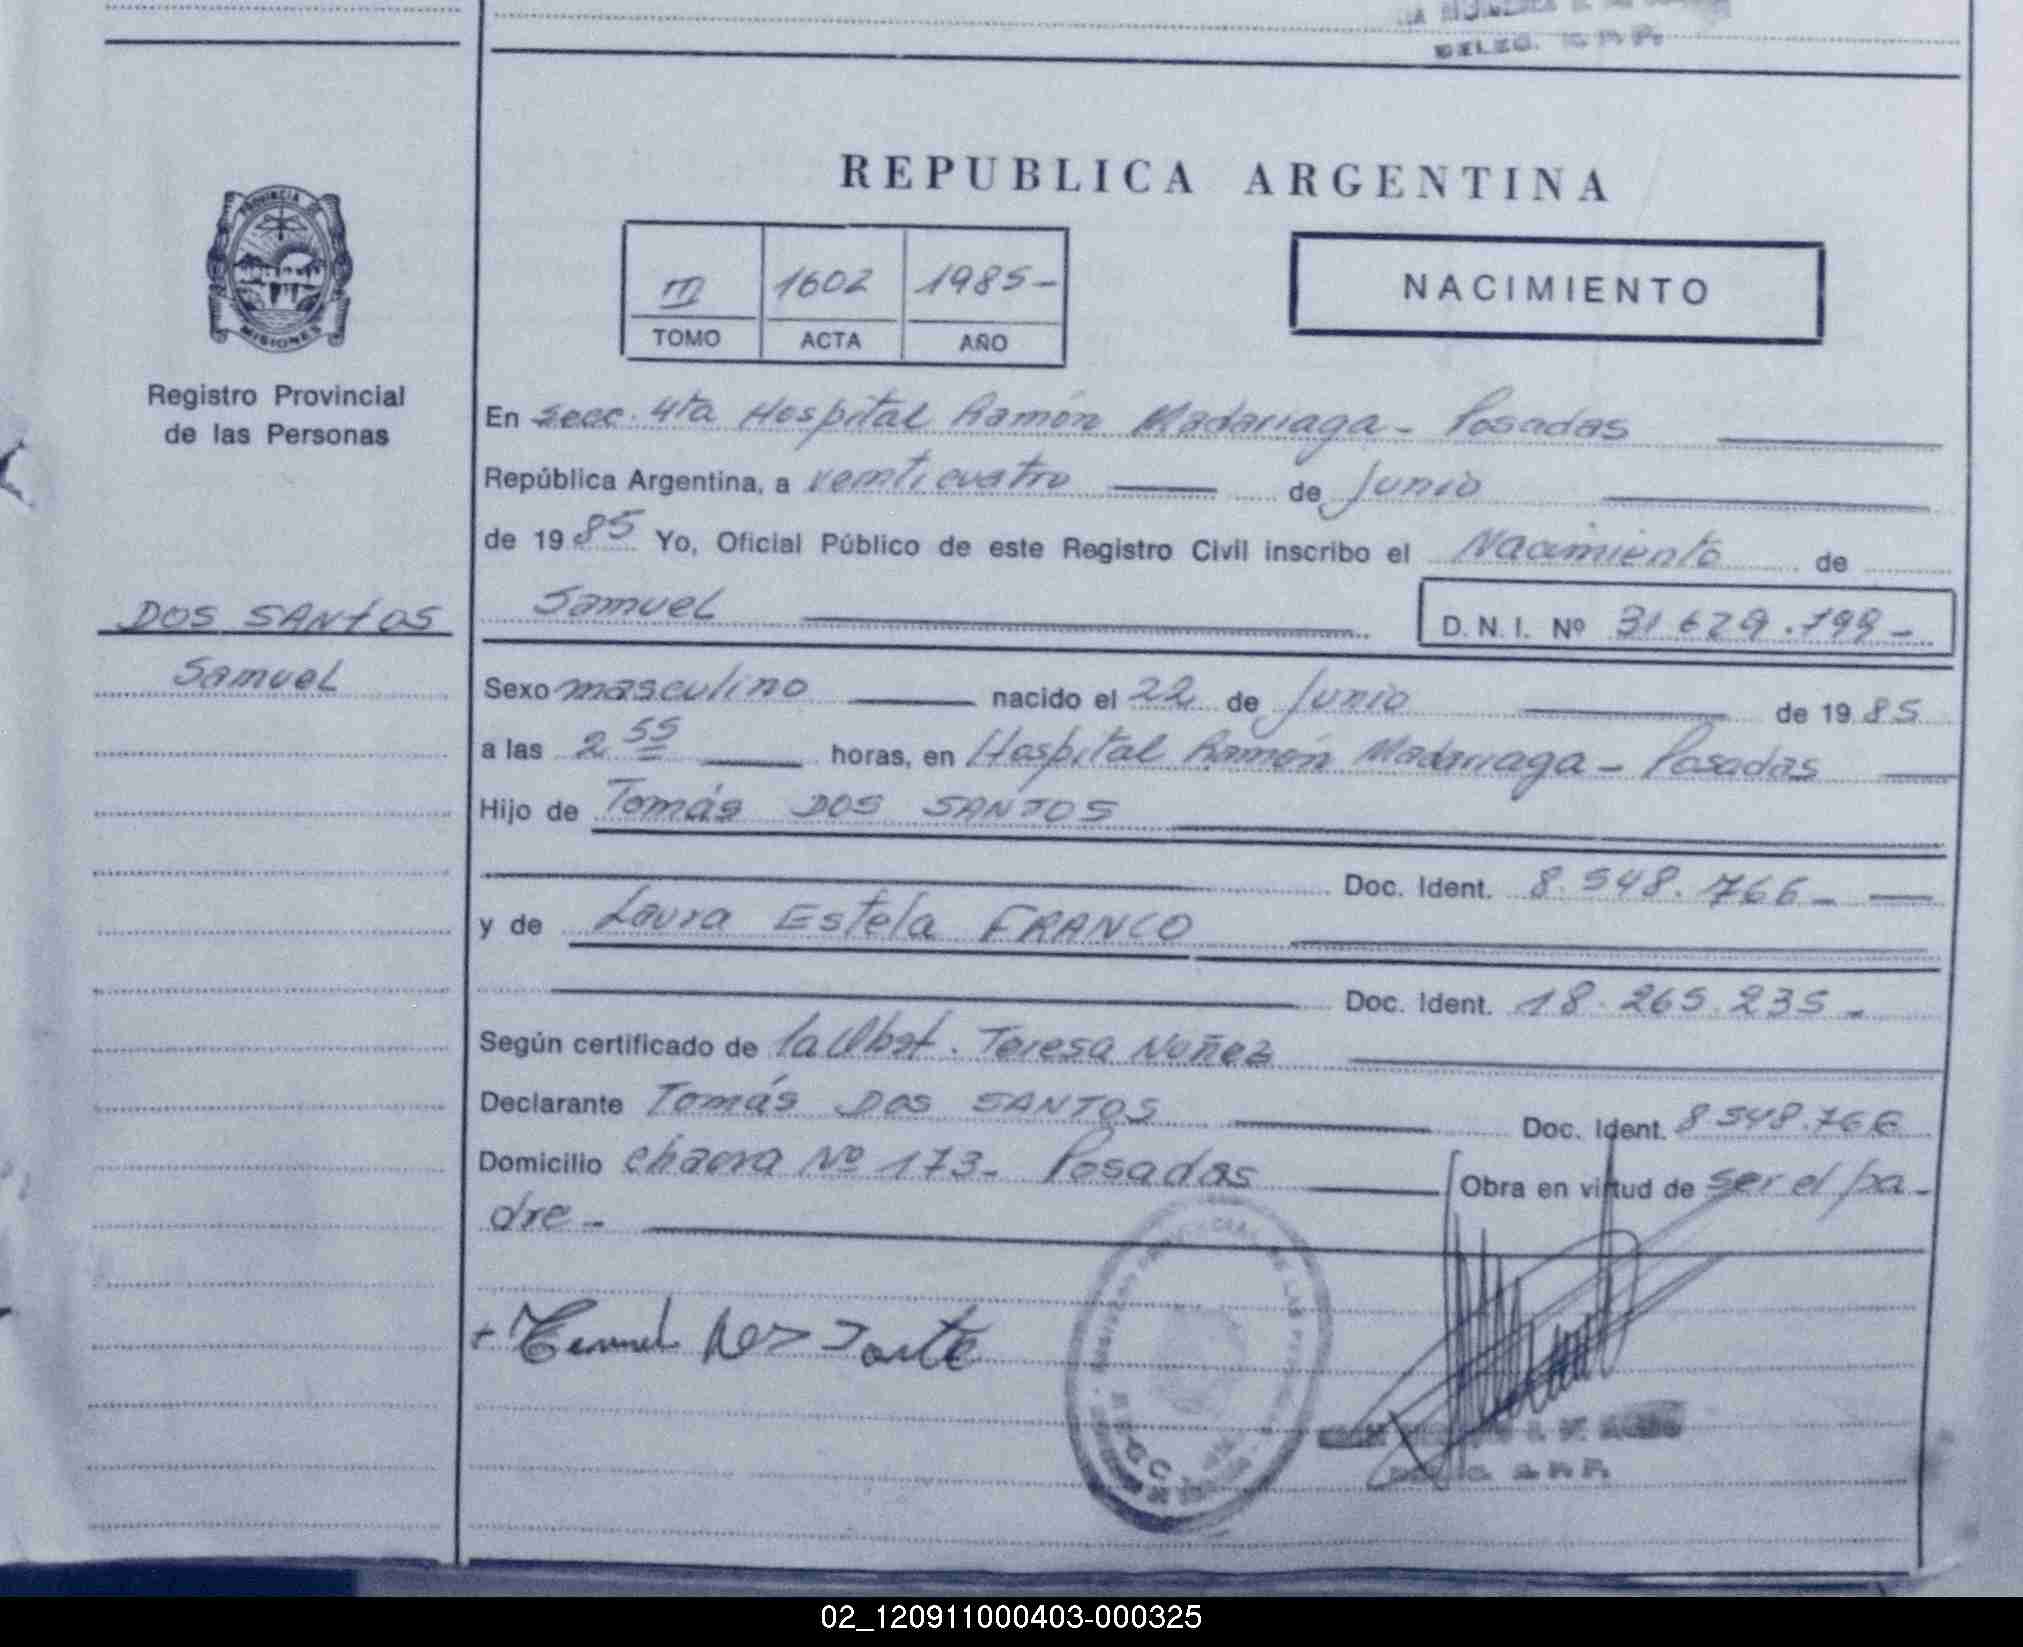 DELEG.
REPUBLICA ARGENTINA
PROVINCIA DE
MISIONES
III 1602 1985-
TOMO ACTA AÑO
NACIMIENTO
Registro Provincial
de las Personas
En Secc. 4ta Hospital Ramón Madariaga - Posadas
República Argentina, a veinticuatro de Junio
de 1985 Yo, Oficial Público de este Registro Civil inscribo el Nacimiento de
DOS SANtOS
Samuel
Samuel D. N. I. Nº 31.629.799-
Sexo masculino nacido el 22 de Junio de 1985
a las 2 55 horas, en Hospital Ramón Madariaga - Posadas
Hijo de Tomás DOS SANTOS
Doc. Ident. 8.548.766-
y de Laura Estela FRANCO
Doc. Ident. 18.265.235-
Según certificado de la Obst. Teresa Nuñez
Declarante Tomás DOS SANTOS Doc. Ident. 8.548.766
Domicilio chacra Nº 173- Posadas Obra en virtud de ser el pa-
dre-
02_120911000403-000325